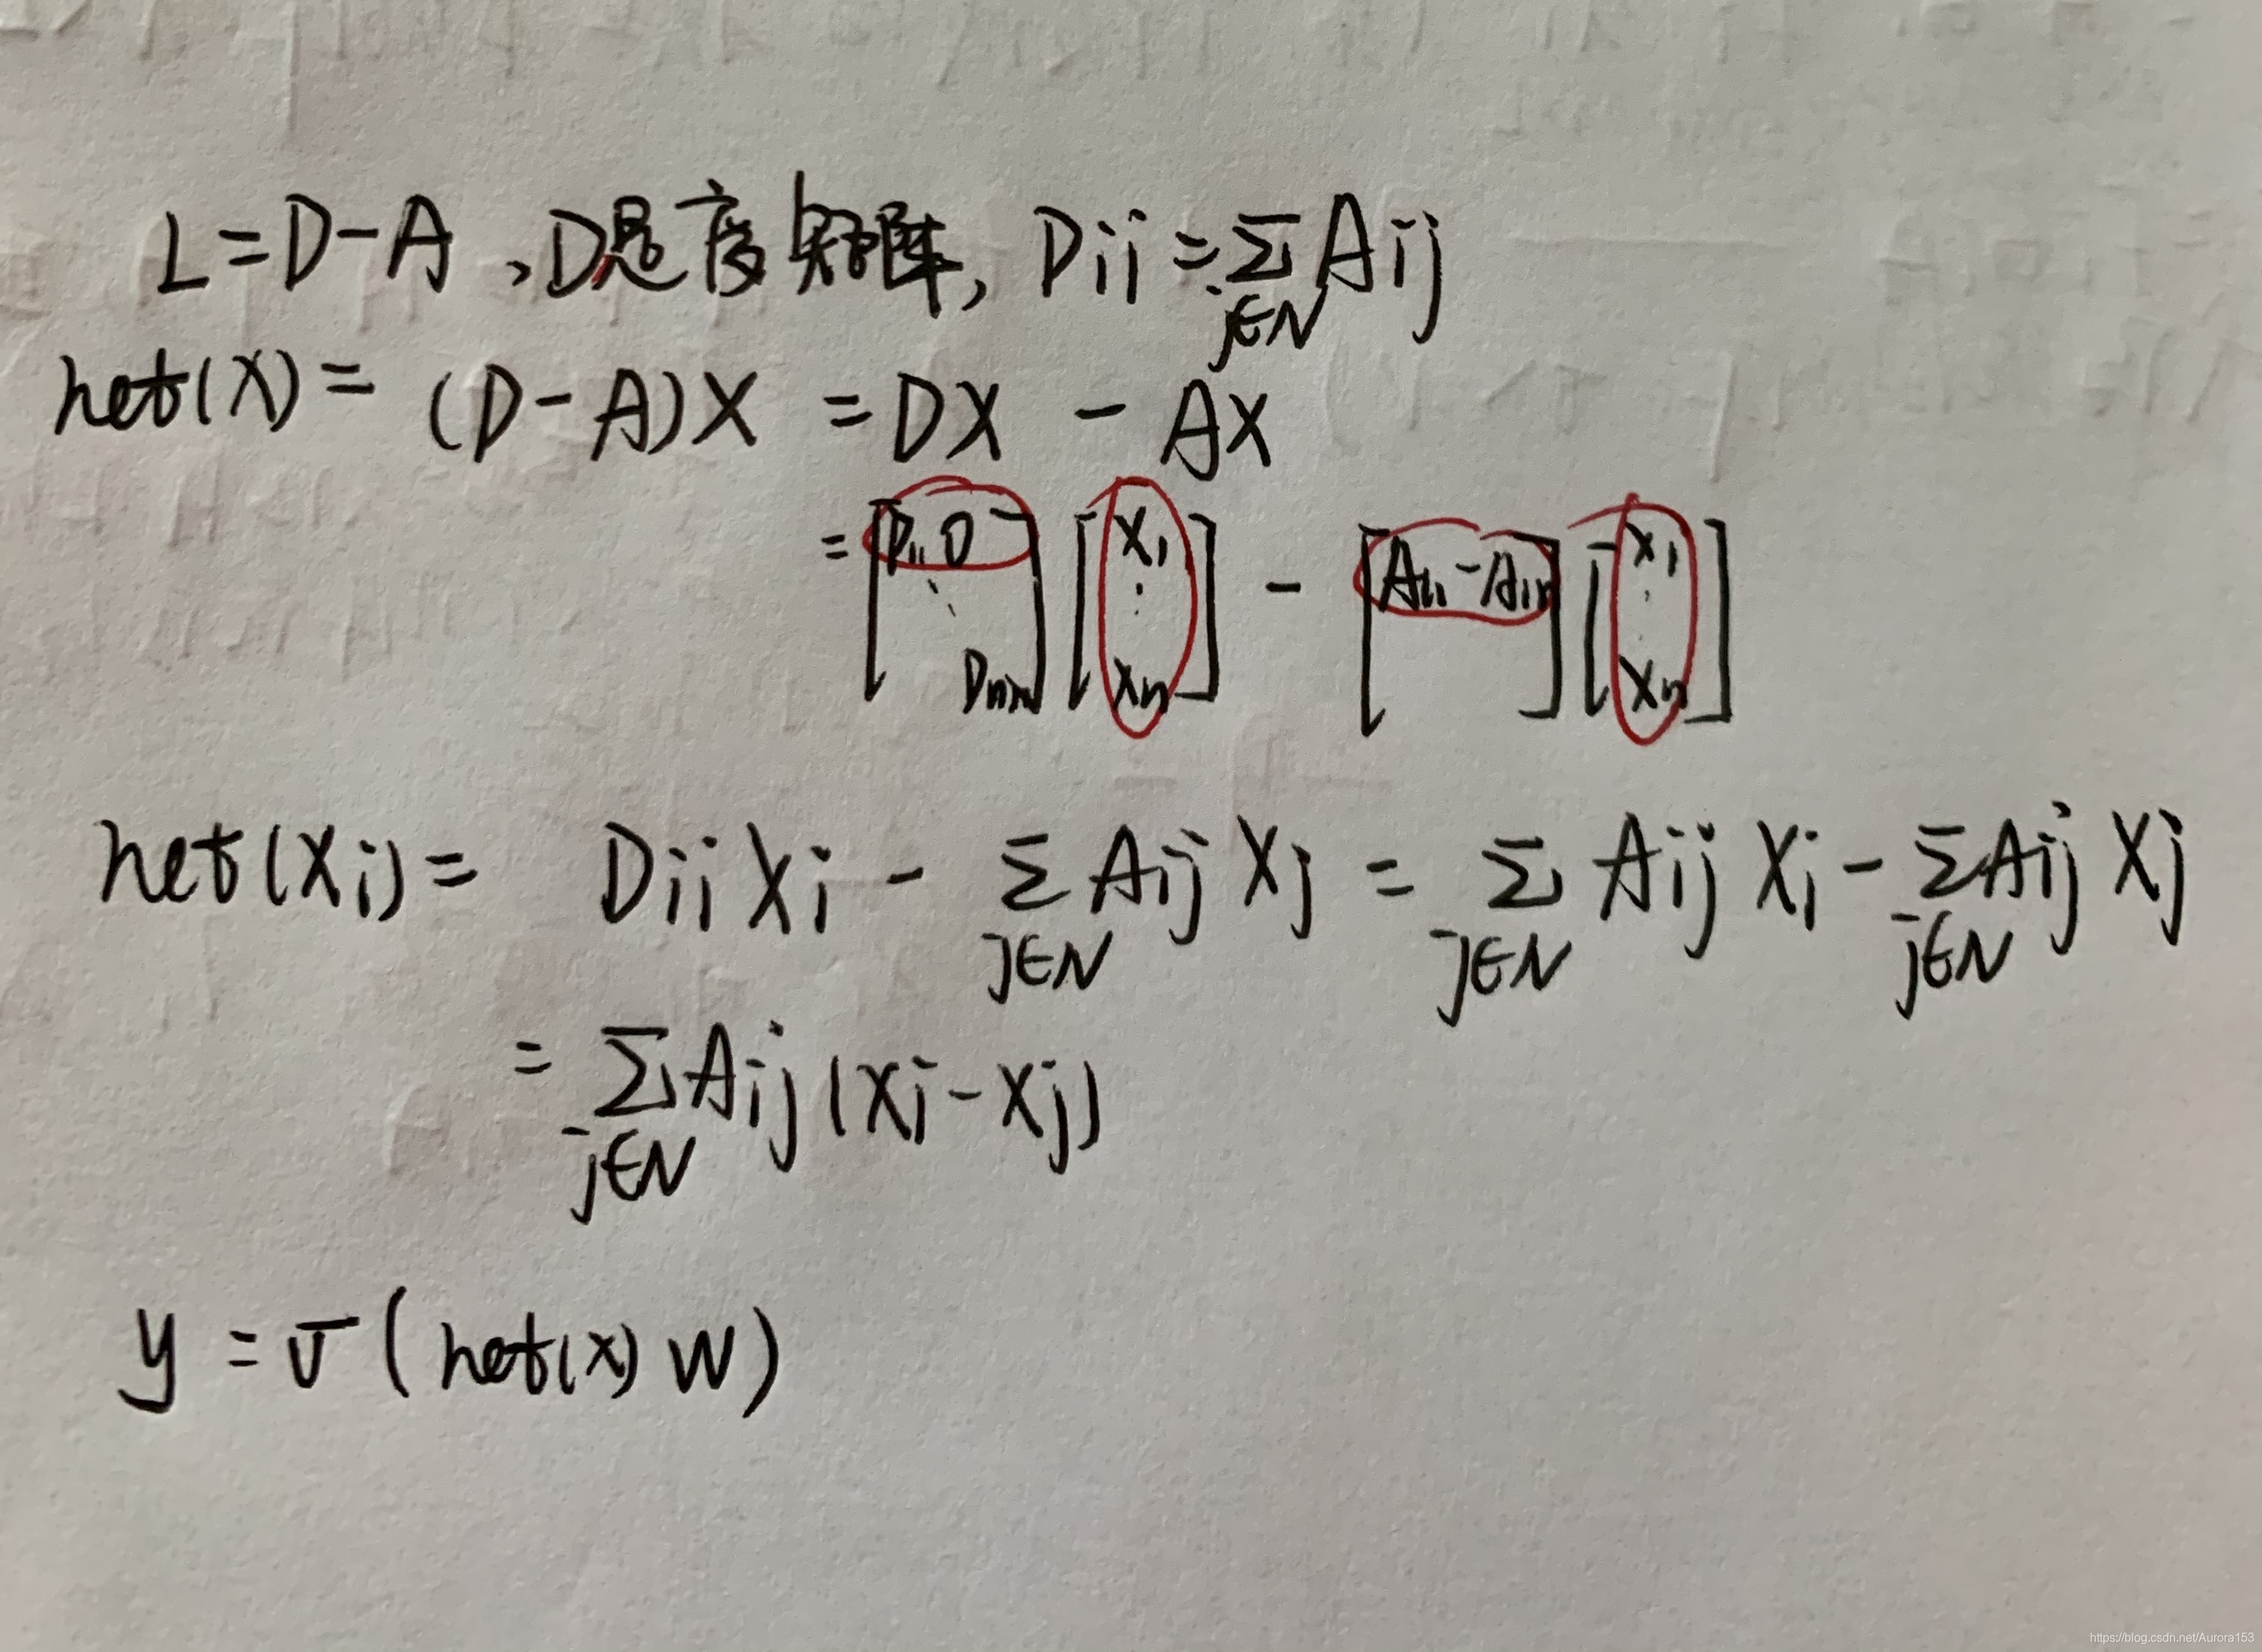 L=D-A，D是度矩阵，Dii=∑_{j∈N}Aij
net(X)=(D-A)X=DX-AX
=[D11 0 ⋱ Dnn][X1 ⋮ Xn]-[A11-A1n][X1 ⋮ Xn]
net(Xi)=DiiXi-∑_{j∈N}AijXj=∑_{j∈N}AijXi-∑_{j∈N}AijXj
=∑_{j∈N}Aij(Xi-Xj)
y=σ(net(x)W)
https://blog.csdn.net/Aurora153